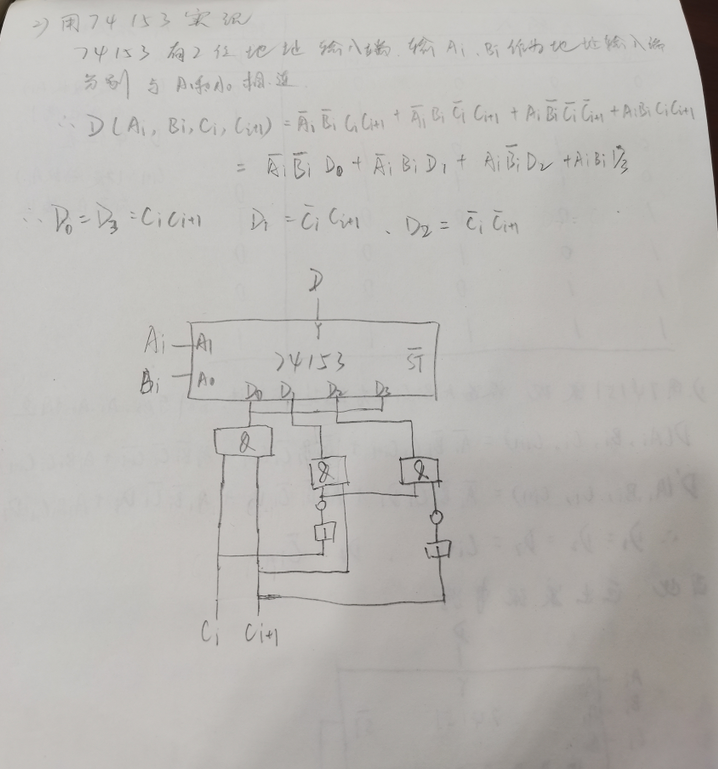 2) 用74153实现
74153有2位地址输入端.输Ai、Bi作为地址输入端
分别与A1和A0相连
∴ D(Ai, Bi, Ci, Ci+1) = A̅i B̅i Ci Ci+1 + A̅i Bi C̅i Ci+1 + Ai B̅i C̅i C̅i+1 + Ai Bi Ci Ci+1
= A̅i B̅i D0 + A̅i Bi D1 + Ai B̅i D2 + Ai Bi D3
∴ D0 = D3 = Ci Ci+1 D1 = C̅i Ci+1 、 D2 = C̅i C̅i+1
D
Y
Ai A1 74153 S̅T̅
Bi A0
D0 D1 D2 D3
& & &
1 1
Ci Ci+1